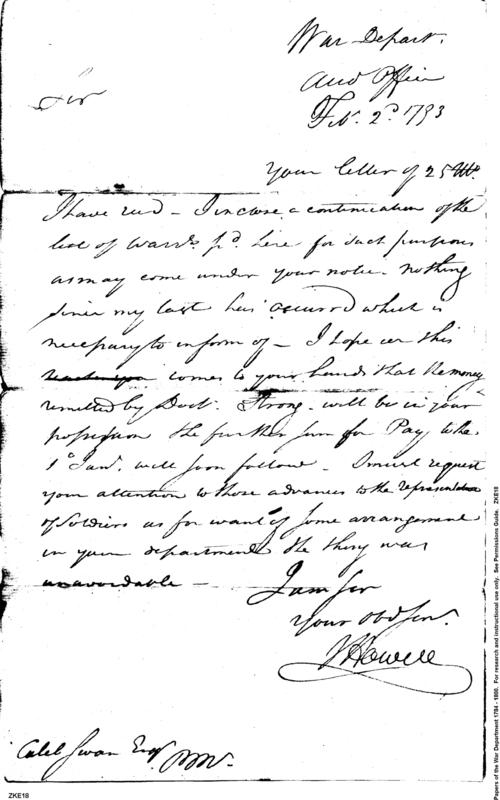 War Depart.
Accot Office
Feb. 2d. 1793
Sir
Your letter of 25 Ulto.
I have recd - I inclose a continuation of the
list of Warrts. pd. here for such purposes
as may come under your notice. nothing
since my last has occurred which is
necessary to inform of - I hope ere this
comes to your hands that the money
remitted by Doct. Strong will be in your
possession the further sum for Pay to the
1st Jany. will soon follow - I must request
your attention to those advances to the representatives
of Soldiers as for want of some arrangement
in your department the thing was
unavoidable -
I am Sir
Your Obd Servt.
J Howell
Caleb Swan Esqr. PM.
ZKE18
Papers of the War Department 1784 - 1800. For research and instructional use only. See Permissions Guide. ZKE18